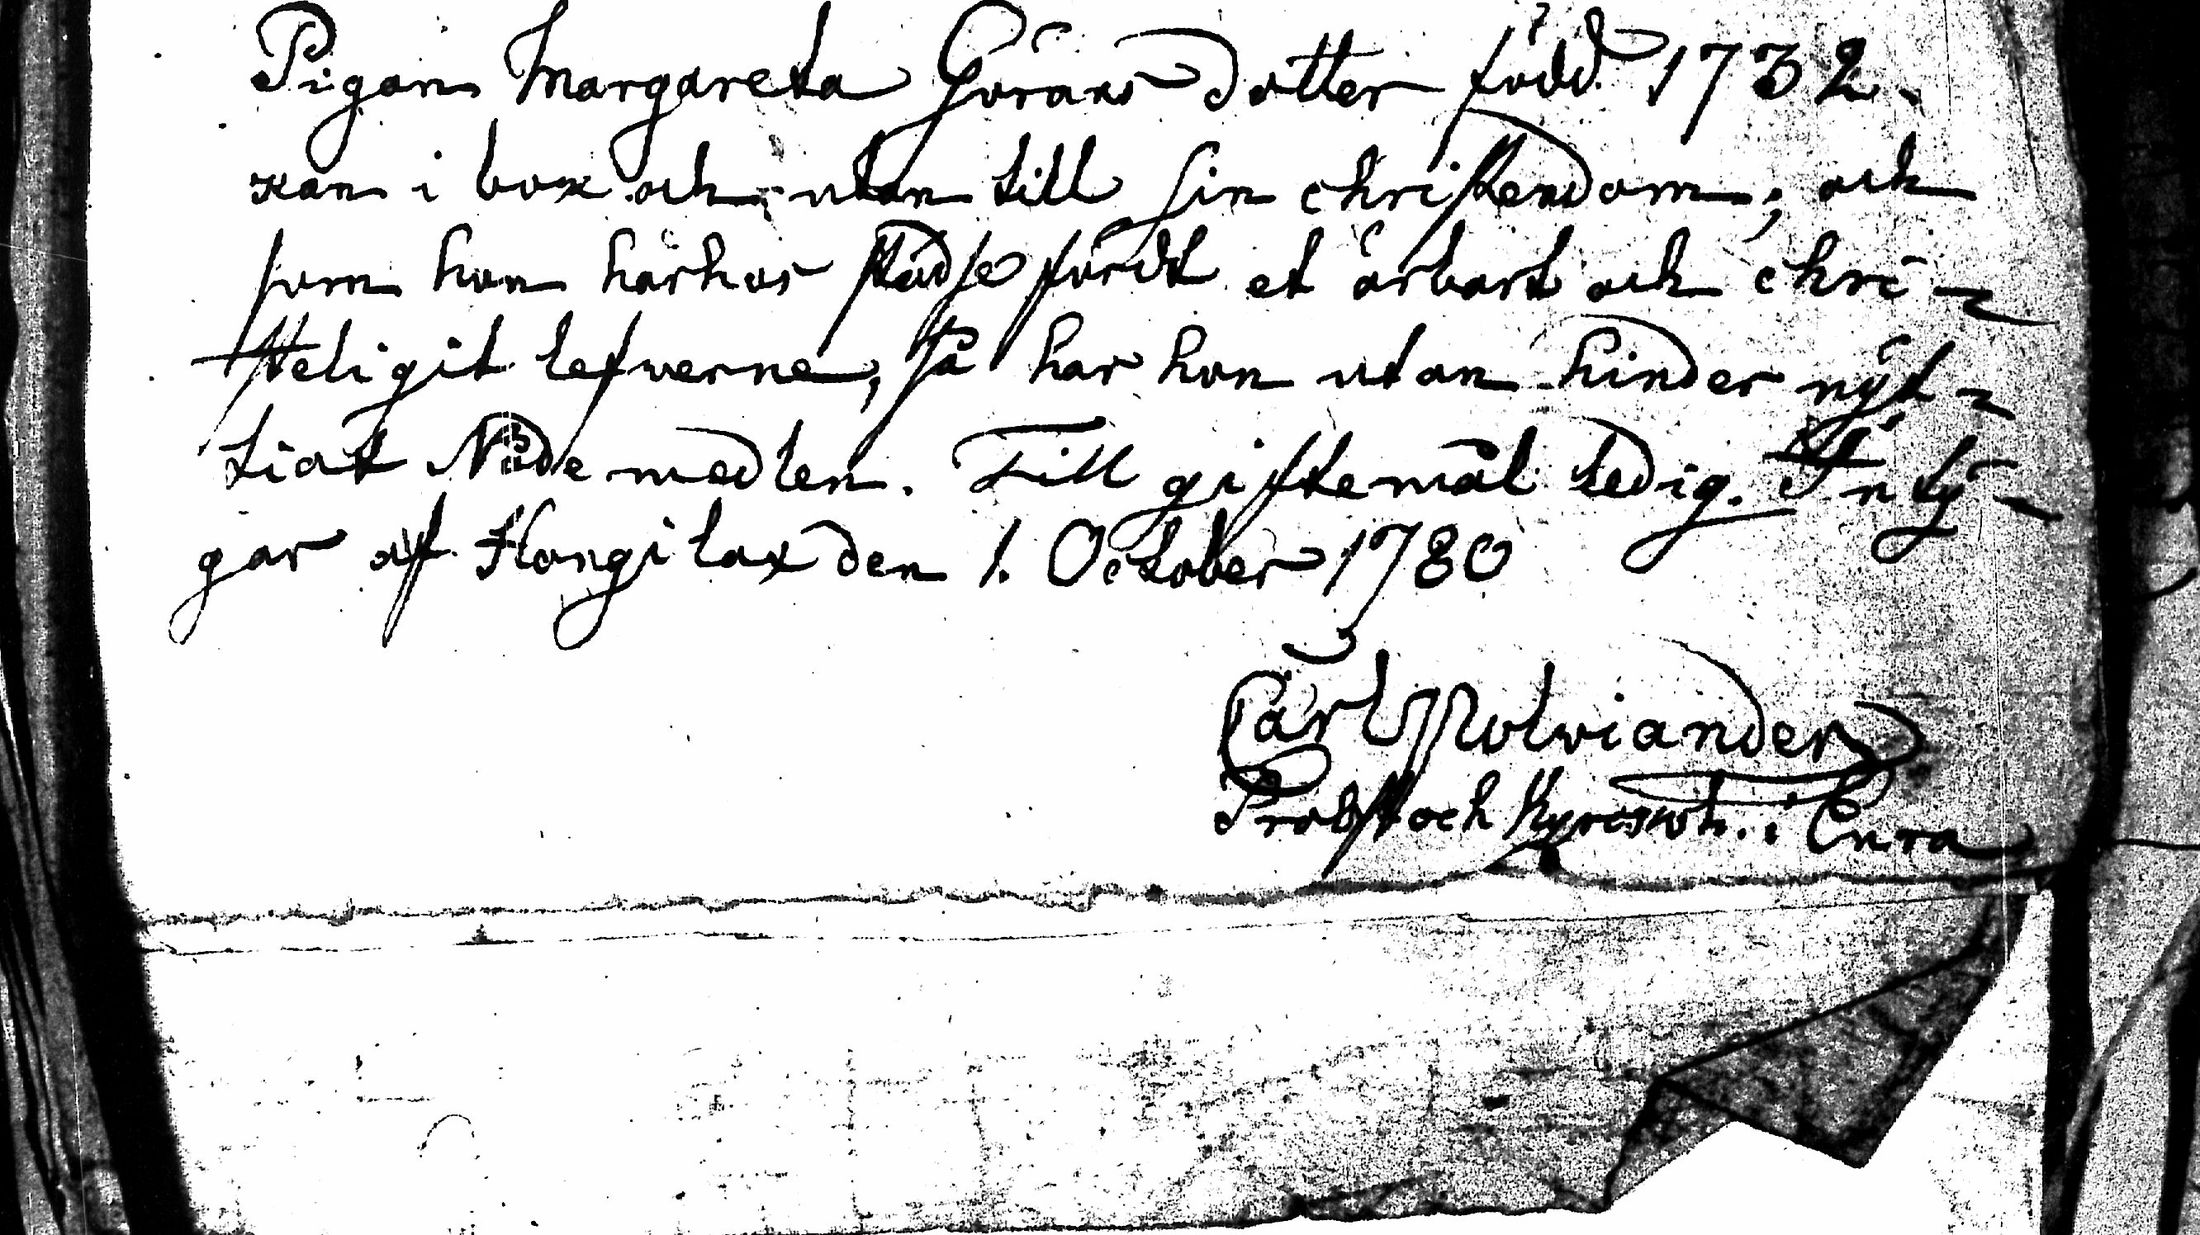 Pigan Margareta Görans dotter född 1732.
kan i bok och utan till sin christendom; och
som hon härhos städse fördt et ärbart och chri-
steligit lefwerne, så har hon utan hinder nytt-
tiat Nåde medlen. Till giftemål ledig. Inty-
gar af Hongilax den 1. October 1780
Carl Polviander
Probst och Kyrcoh. i Eura